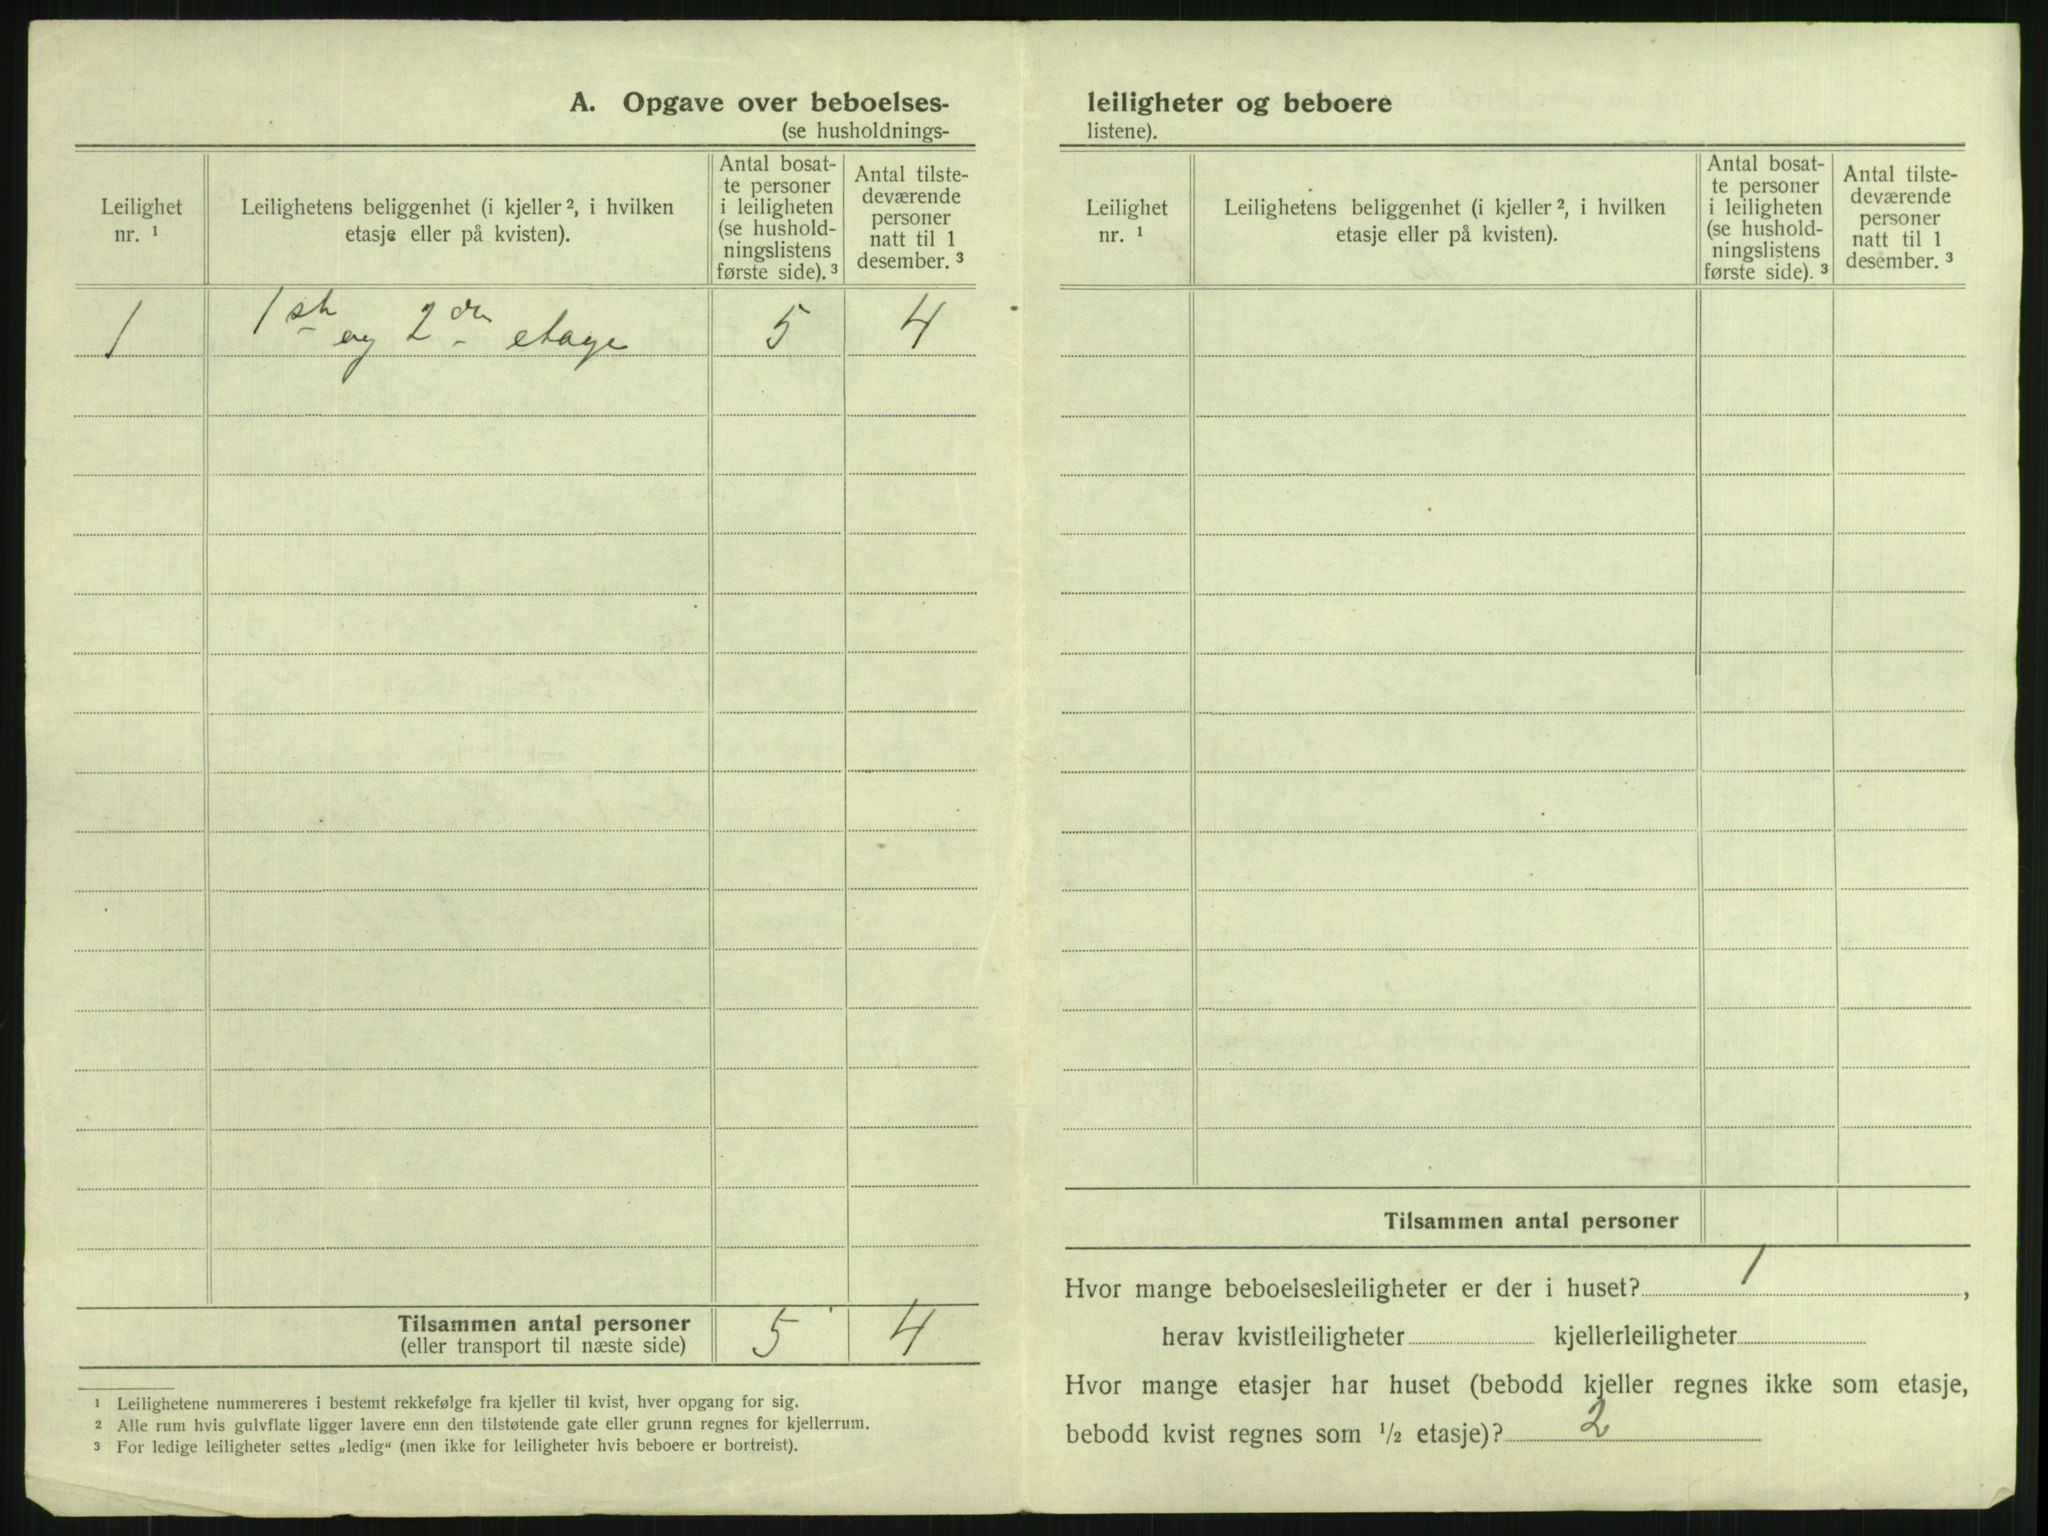 A. Opgave over beboelses-
(se husholdnings-
Leilighet
nr. 1
Leilighetens beliggenhet (i kjeller 2, i hvilken
etasje eller på kvisten).
Antal bosat-
te personer
i leiligheten
(se hushold-
ningslistens
første side). 3
Antal tilste-
deværende
personer
natt til 1
desember. 3
1 1ste og 2den etage 5 4
Tilsammen antal personer 5 4
(eller transport til næste side)
1 Leilighetene nummereres i bestemt rekkefølge fra kjeller til kvist, hver opgang for sig.
2 Alle rum hvis gulvflate ligger lavere enn den tilstøtende gate eller grunn regnes for kjellerrum.
3 For ledige leiligheter settes „ledig“ (men ikke for leiligheter hvis beboere er bortreist).
leiligheter og beboere
listene).
Leilighet
nr. 1
Leilighetens beliggenhet (i kjeller 2, i hvilken
etasje eller på kvisten).
Antal bosat-
te personer
i leiligheten
(se hushold-
ningslistens
første side). 3
Antal tilste-
deværende
personer
natt til 1
desember. 3
Tilsammen antal personer
Hvor mange beboelsesleiligheter er der i huset? 1 ,
herav kvistleiligheter kjellerleiligheter
Hvor mange etasjer har huset (bebodd kjeller regnes ikke som etasje,
bebodd kvist regnes som 1/2 etasje)? 2